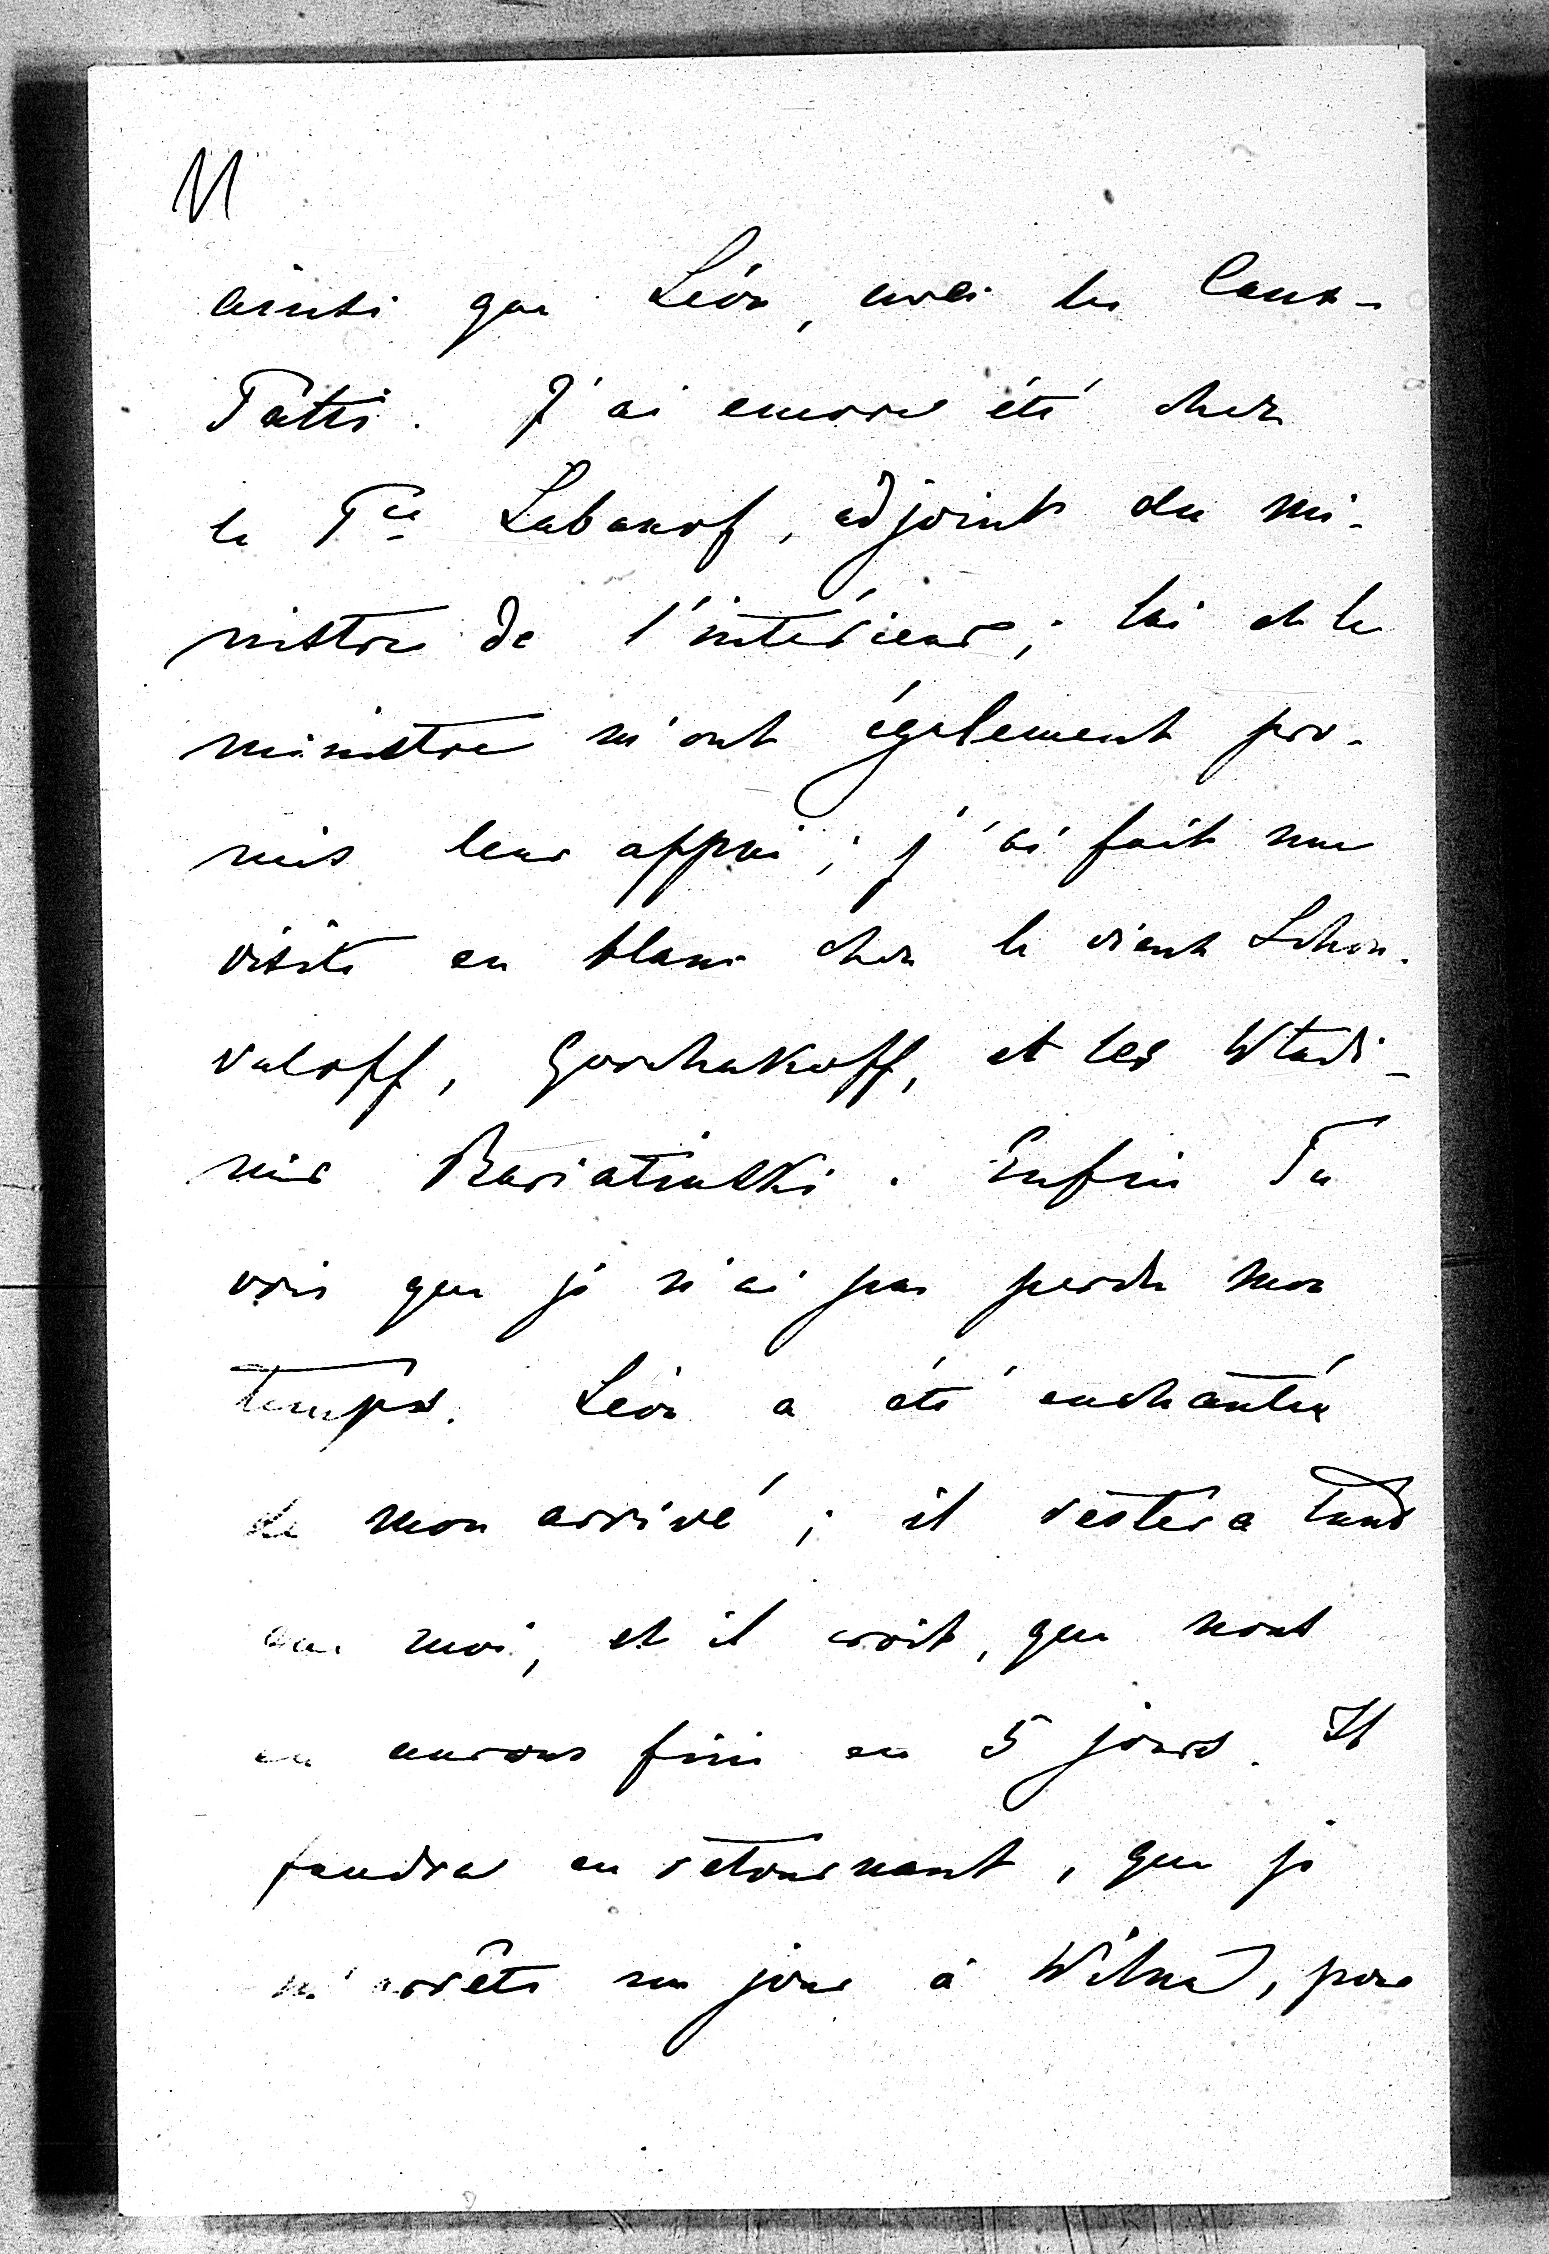 11
ainsi que Léon, avec les Caux-
Patti. J'ai encore été chez
le Pce Labanof, adjoint du mi-
nistre de l'intérieur; lui et le
ministre m'ont également pro-
mis leur appui; j'ai fait une
visite en blanc chez le vieux Schou-
valoff, Gorchakoff, et les Wladi-
mir Bariatinski. Enfin Tu
vois que je n'ai pas perdu mon
temps. Léon a été enchanté
de mon arrivé; il restera tant
que moi, et il croit, que nous
en aurons fini en 5 jours. Il
faudra en retournant, que je
m'arrête un jour à Wilna, pour